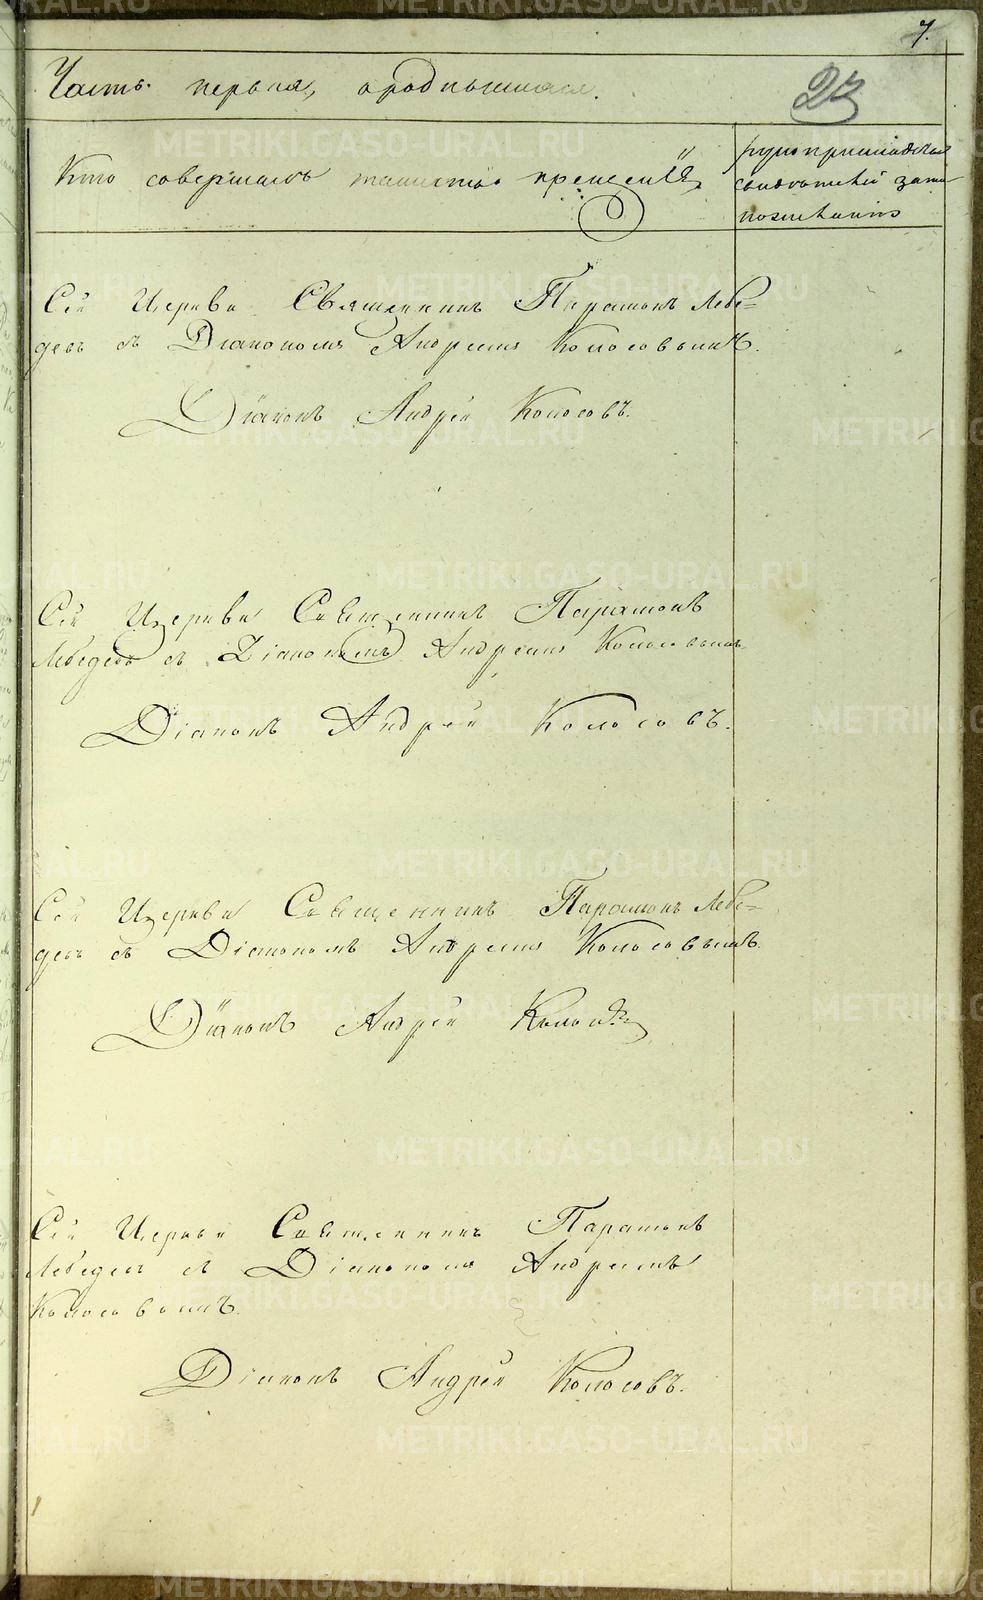 7.
23
Часть первая, о родившихся.
Кто совершалъ таинство крещенія
рукоприкладства
свидетелей запи
по желанію
Сей Церкви Священник Парамонъ Лебе-
девъ съ Діакономъ Андреемъ Колосовымъ.
Діаконъ Андрей Колосовъ.
Сей Церкви Священникъ Парамонъ
Лебедевъ съ Діакономъ Андреемъ Колосовымъ
Діаконъ Андрей Колосовъ.
Сей Церкви Священникъ Парамонъ Лебе-
девъ съ Діакономъ Андреемъ Колосовымъ.
Діаконъ Андрей Колосовъ
Сей Церкви Священникъ Парамонъ
Лебедевъ съ Діакономъ Андреемъ
Колосовымъ.
Діаконъ Андрей Колосовъ.
METRIKI.GASO-URAL.RU